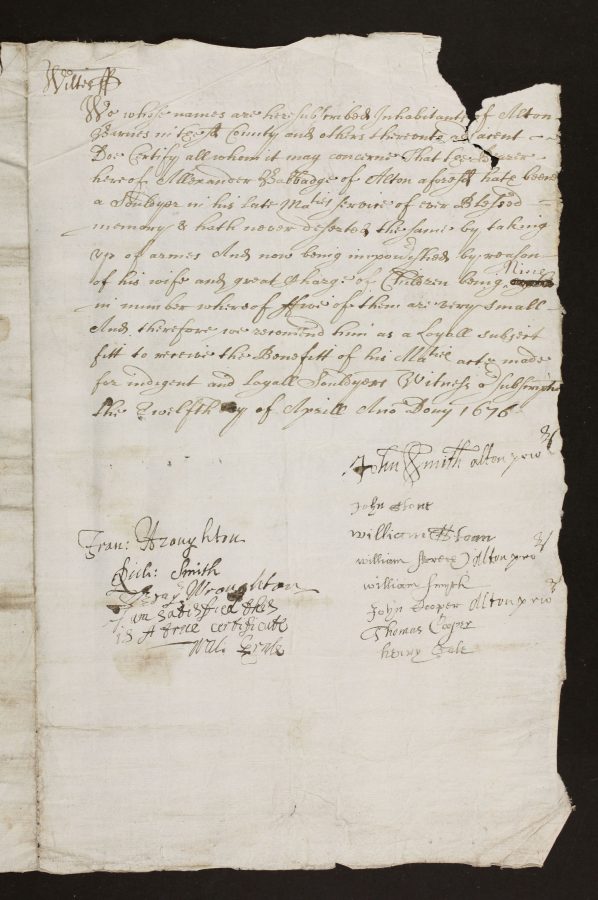 Wiltes ss
We whose names are heresubscribed Inhabitants of Alton
Barnes in ye sd County and others thereonto adjacent
Doe Certify all whom it may concerne That the bearer
hereof Allexander Babbadge of Alton aforesd hath beene
a Souldyer in his late Maties service of ever Blessed
memory & hath never deserted the same by taking
up of armes And now being impovrished by reason
of his wife and great Charge of Children being Nine
in number whereof ffive of them are very small
And therefore we recomend him as a Loyall subject
fitt to receive the Benefitt of his Maties acte made
for indigent and Loyall Souldyers Witness or subscriptio
the Twelfth day of Aprill Ano Dony 1676
John Smith alton prio
John Stone
william
william Alton prio
william Smyth
John Cooper Alton prio
Thomas Cooper
henry
Fran: Wroughton
Gili: Smith
Geray Wroughton
I am satisfied this
is A true certificate
Wil: